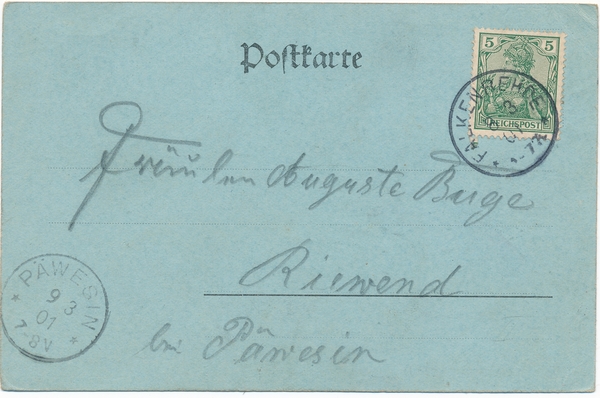 Postkarte
5 5
REICHSPOST
FALKENREHDE
8 3
01
Fräulen Auguste Buge
Riewend
bei Päwesin
* PÄWESIN *
9 3
01
7-8V